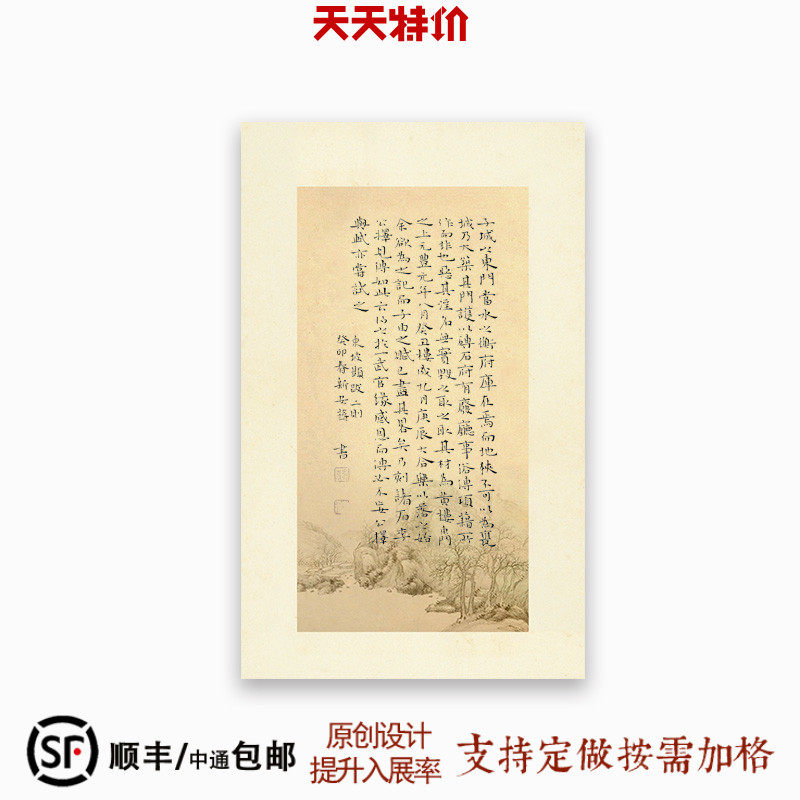 天天特价
子城之東門當水之衝府庫在焉而地狹不可以為甕
城乃大築其門護以磚石府有廢廳事俗傳項籍所
作而非也惡其淫名無實毀之取之取其材為黄樓東門
之上元豐元年八月癸丑樓成九月庚辰大合樂以落之始
余欲為之記而子由之賦已盡其畧矣乃刻諸石李
公擇見傳如此云僕之於一武官緣感恩而傳必不妄公擇
與賦亦當試之
東坡題跋二則
癸卯春新
書
SF
顺丰/中通包邮
原创设计
提升入展率
支持定做按需加格